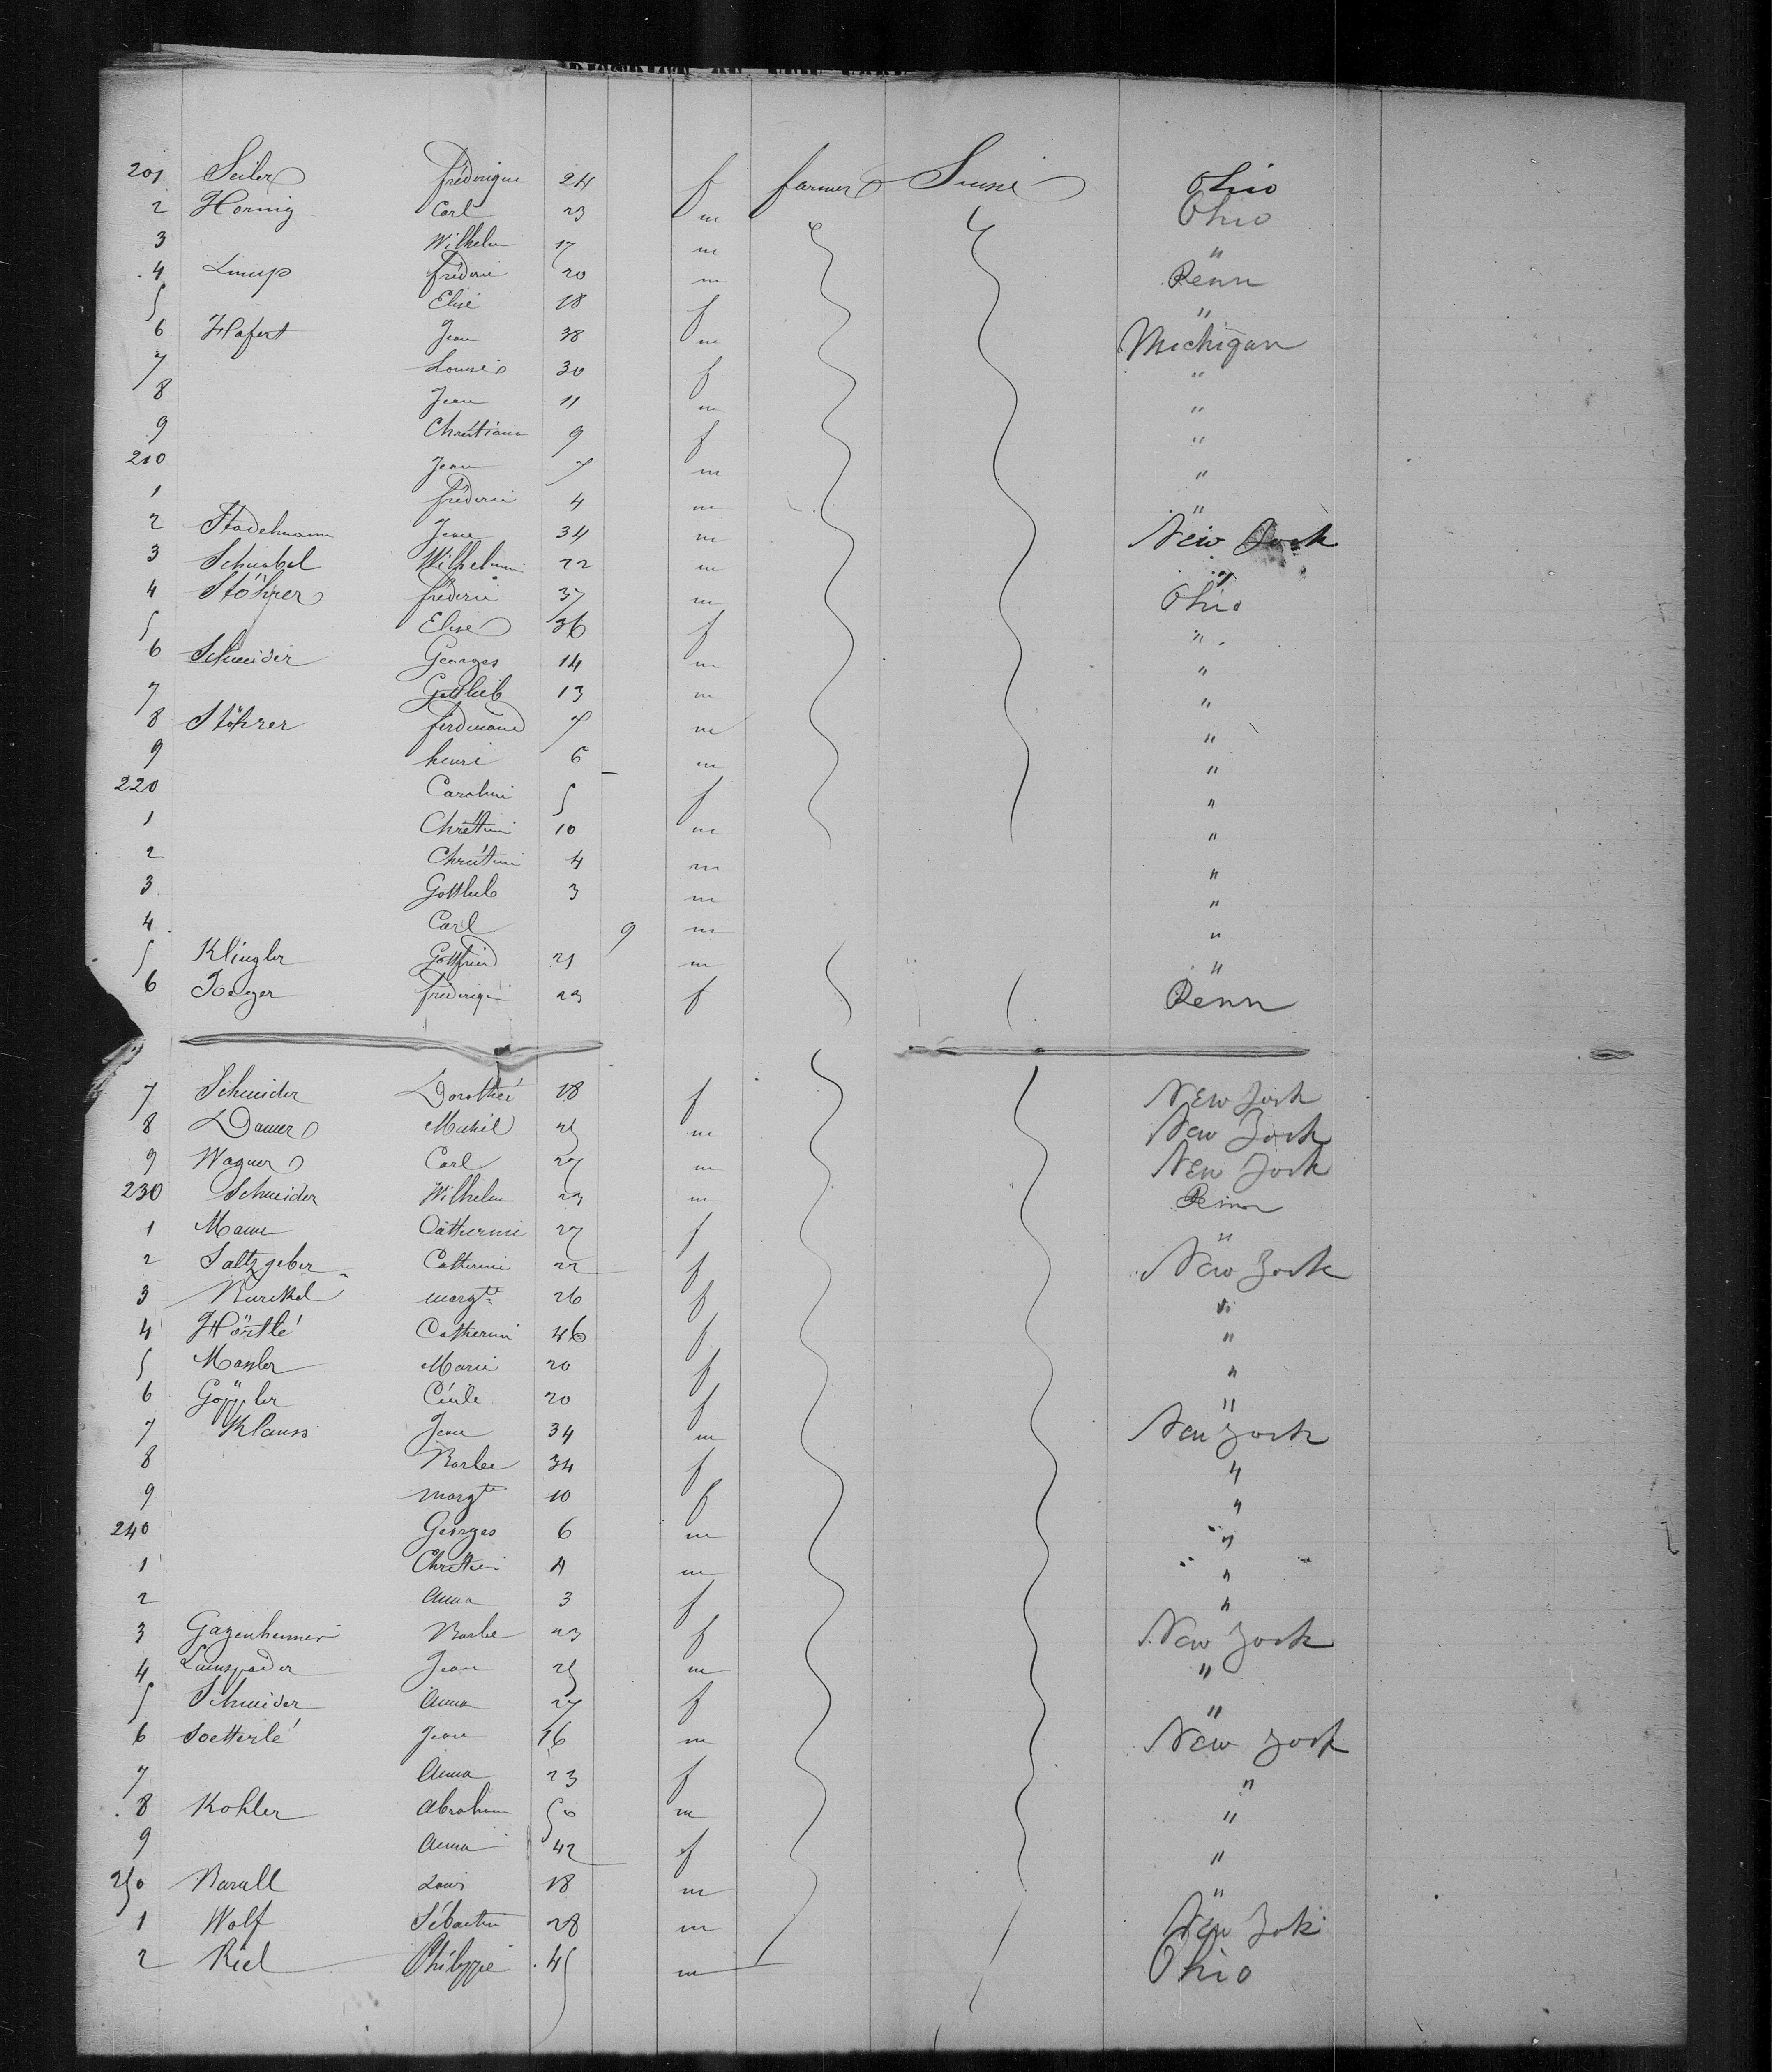 201 Seiler fréderique 24 f farmer Suisse Ohio
2 Hornig Carl 23 m Ohio
3 Wilhelm 17 m "
4 fréderic 20 m Penn
5 Elise 18 f "
6 Hafert Jean 38 m Michigan
7 Louise 30 f "
8 Jean 11 m "
9 Chrétiana 9 f "
210 Jean 7 m "
1 fréderic 4 m "
2 Stadelmann Jean 34 m New York
3 Schnabel Wilhelm 22 m "
4 Stöhrer frederic 37 m Ohio
5 Elise 36 f "
6 Schneider Georges 14 m "
7 Gottlieb 13 m "
8 Stöhrer ferdinand 7 m "
9 henri 6 m "
220 Caroline 5 f "
1 Chrettien 10 m "
2 Chrétien 4 m "
3 Gottlieb 3 m "
4 Carl 9 m "
5 Klingler Gottfried 21 m "
6 Joeger frederique 23 f Penn
7 Schneider Dorothée 18 f New York
8 Danner Michel 25 m New York
9 Wagner Carl 27 m New York
230 Schneider Wilhelm 23 m Penn
1 Mann Catherine 27 f "
2 Saltzgeber Catherine 22 f New York
3 Kunkel margte 26 f "
4 Hörtlé Catherine 46 f "
5 Massler Marie 20 f "
6 Göppler Cécile 20 f "
7 Klauss Jean 34 m New York
8 Barbe 34 f "
9 margte 10 f "
240 Georges 6 m "
1 Chrettien 4 m "
2 Anna 3 f "
3 Gazenheimer Barbe 23 f New York
4 Jean 25 m "
5 Schneider Anna 27 f "
6 Soetterlé Jean 16 m New York
7 Anna 23 f "
8 Kohler Abraham 50 m "
9 Anna 42 f "
250 Barall Louis 18 m "
1 Wolf Sébastien 28 m New York
2 Riel Philippe 45 m Ohio